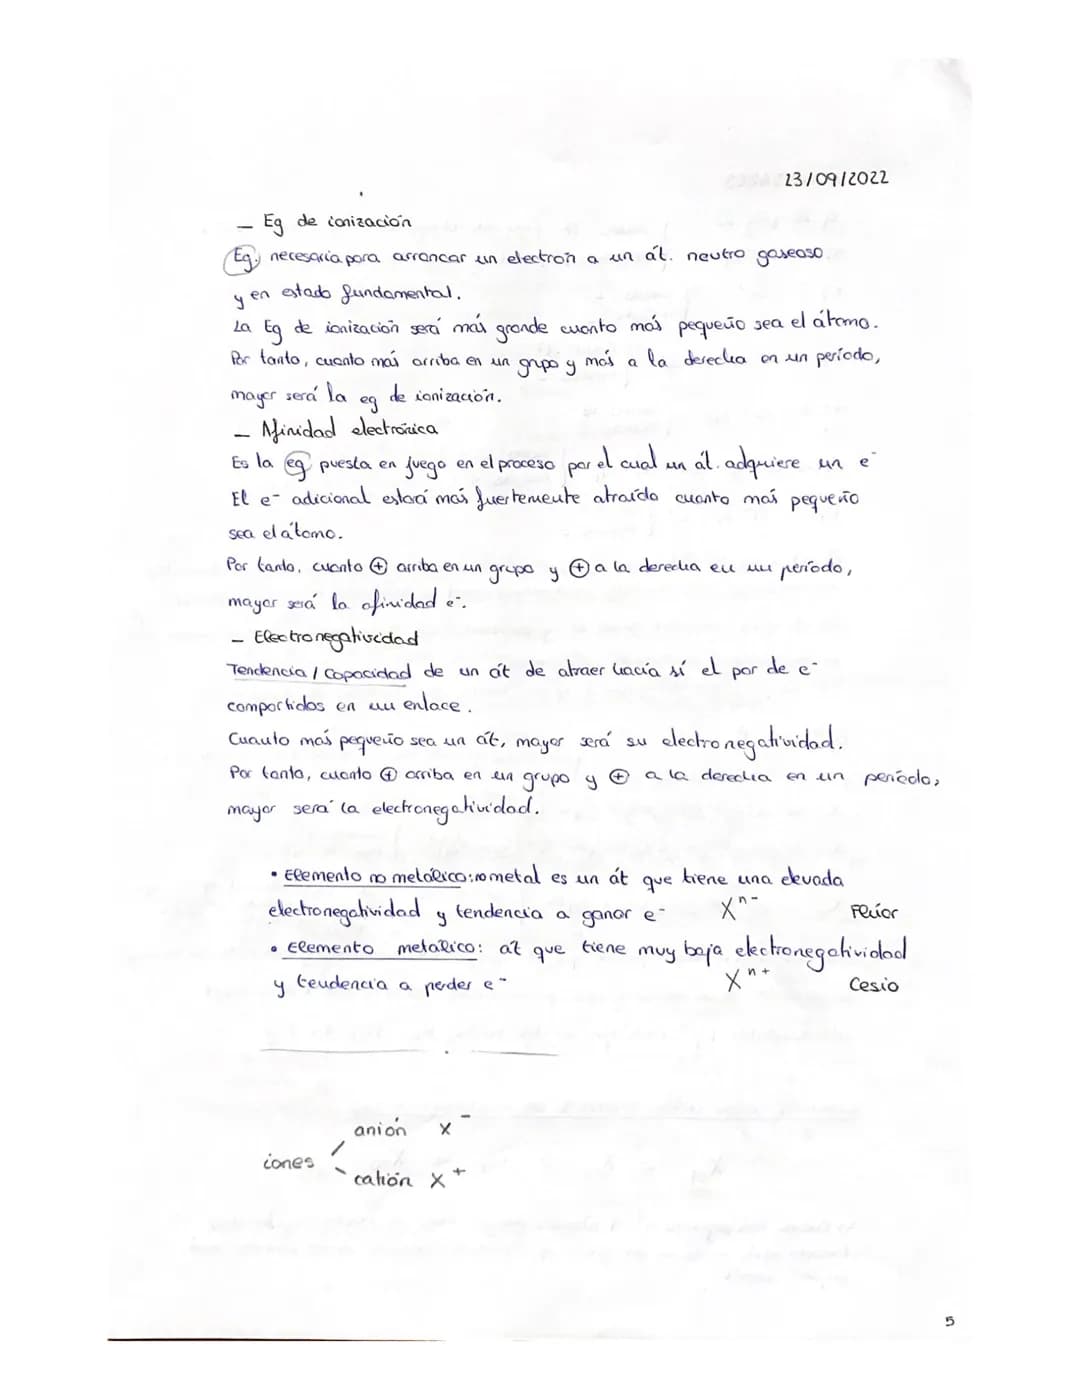 23/09/2022
- Eg de ionización
Eg. necesaria para arrancar un electrón a un át. neutro gaseoso
y en estado fundamental.
La Eg de ionización será más grande cuanto más pequeño sea el átomo.
Por tanto, cuanto más arriba en un grupo y más a la derecha en un período,
mayor será la eg de ionización.
- Afinidad electrónica
Es la eg puesta en juego en el proceso por el cual un át. adquiere un e⁻
El e⁻ adicional estará más fuertemente atraído cuanto más pequeño
sea el átomo.
Por tanto, cuanto ⊕ arriba en un grupo y ⊕ a la derecha en un período,
mayor será la afinidad e⁻.
- Electronegatividad
Tendencia / Capacidad de un át de atraer hacía sí el par de e⁻
compartidos en un enlace.
Cuanto más pequeño sea un át, mayor será su electronegatividad.
Por tanto, cuanto ⊕ arriba en un grupo y ⊕ a la derecha en un período,
mayor será la electronegatividad.
• Elemento no metálico: no metal es un át que tiene una elevada
electronegatividad y tendencia a ganar e⁻ Xⁿ⁻ Flúor
• Elemento metálico: at que tiene muy baja electronegatividad
y tendencia a perder e⁻ Xⁿ⁺ Cesio
anión X⁻
iones
catión X⁺
5